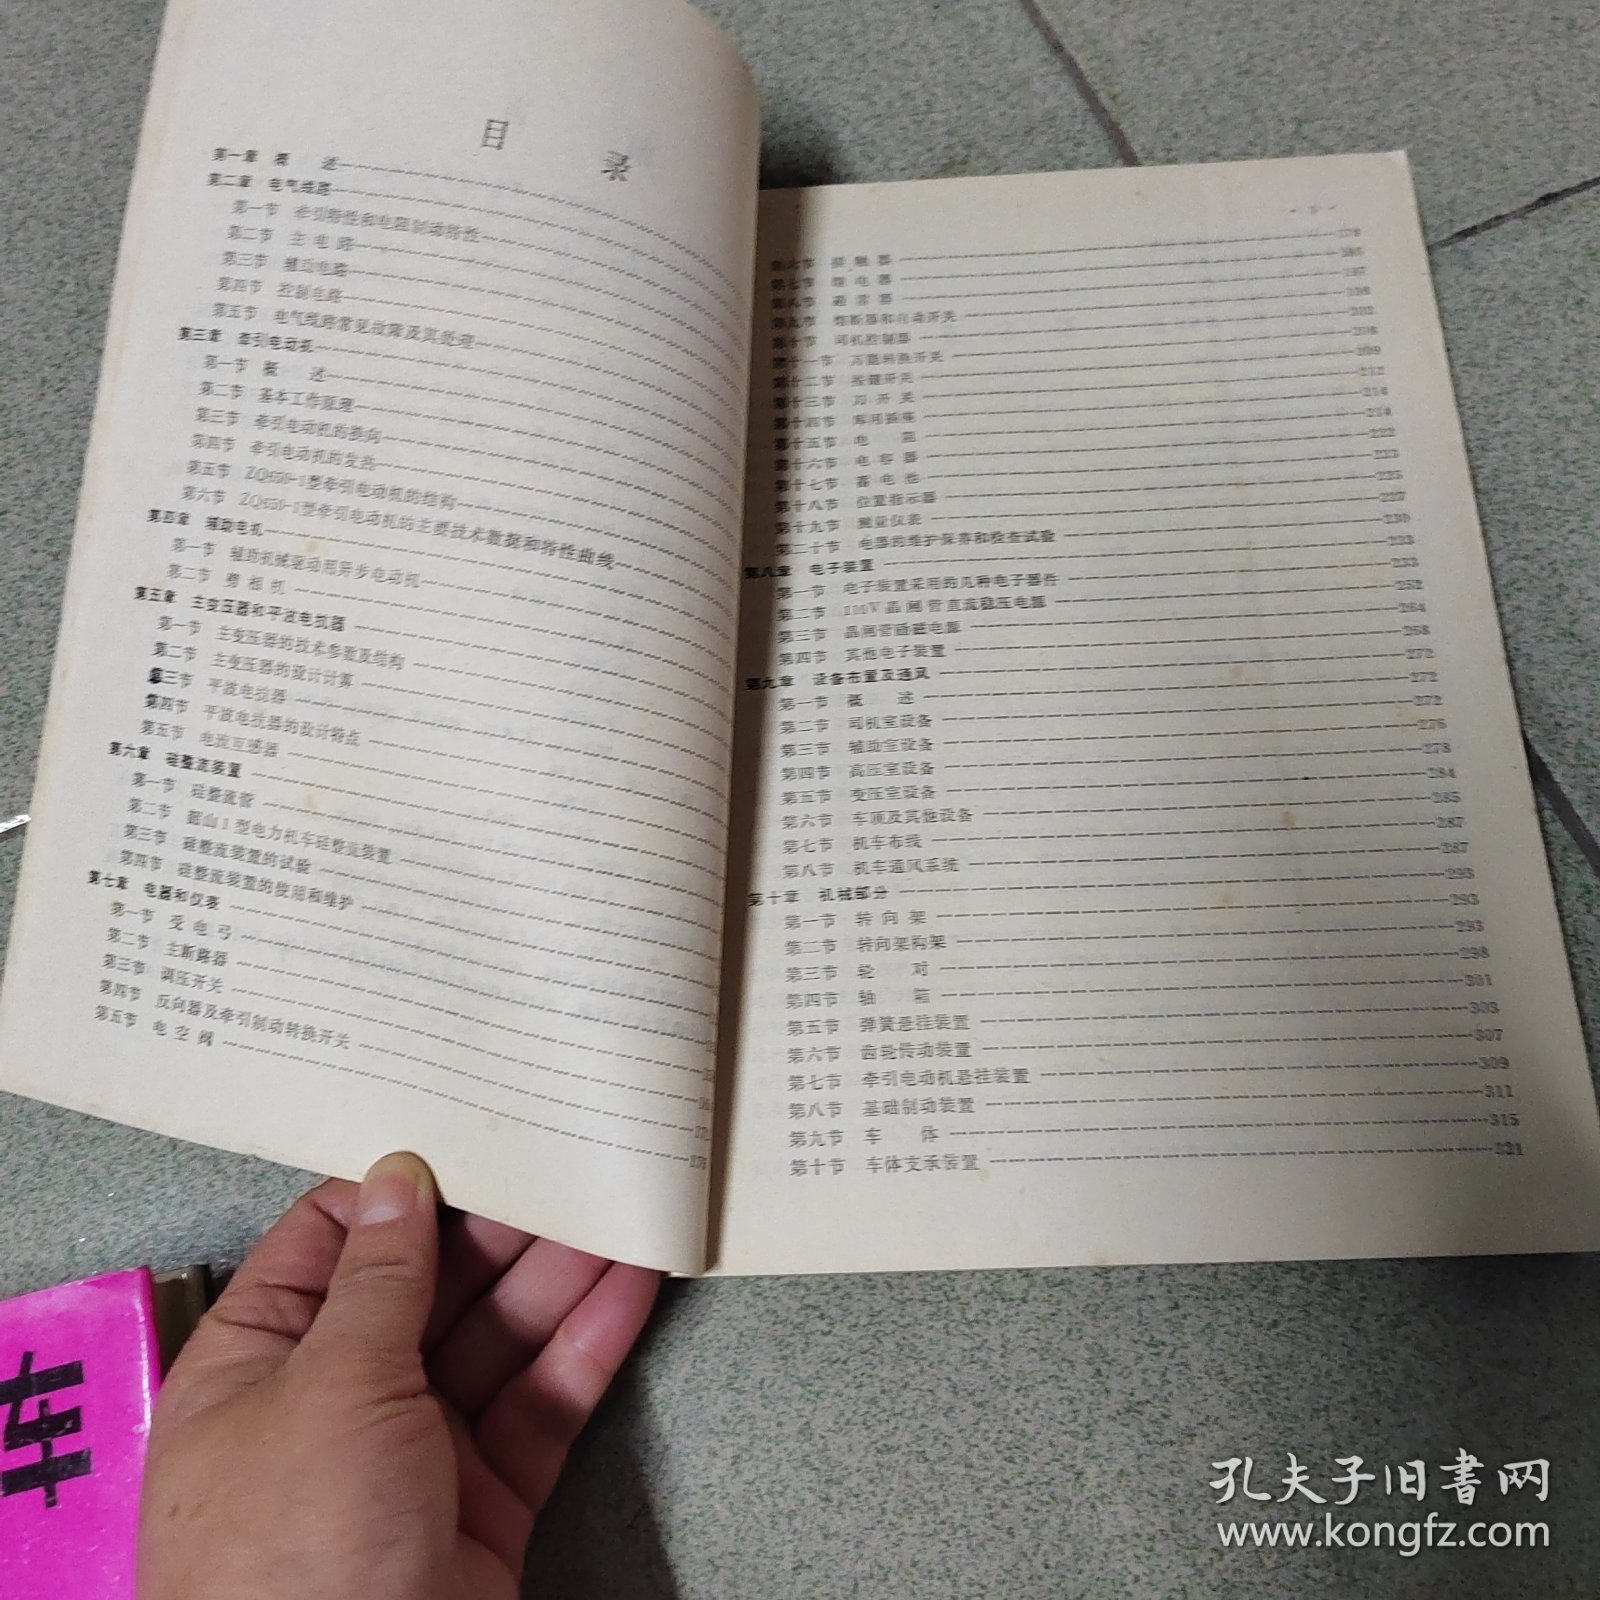 目 录
第一章 概 述
第二章 电气线路
第一节 牵引特性和电阻制动特性
第二节 主电路
第三节 辅助电路
第四节 控制电路
第五节 电气线路常见故障及其处理
第三章 牵引电动机
第一节 概 述
第二节 基本工作原理
第三节 牵引电动机的换向
第四节 牵引电动机的发热
第五节 ZQ650-1型牵引电动机的结构
第六节 ZQ650-1型牵引电动机的主要技术数据和特性曲线
第四章 辅助电机
第一节 辅助机械驱动用异步电动机
第二节 劈相机
第五章 主变压器和平波电抗器
第一节 主变压器的技术参数及结构
第二节 主变压器的设计计算
第三节 平波电抗器
第四节 平波电抗器的设计特点
第五节 电流互感器
第六章 硅整流装置
第一节 硅整流管
第二节 韶山1型电力机车硅整流装置
第三节 硅整流装置的试验
第四节 硅整流装置的使用和维护
第七章 电器和仪表
第一节 受电弓
第二节 主断路器
第三节 调压开关
第四节 反向器及牵引制动转换开关
第五节 电空阀
第六节 接触器 178
第七节 继电器
第八节 避雷器 197
第九节 熔断器和自动开关 198
第十节 司机控制器
第十一节 万能转换开关
第十二节 按键开关 209
第十三节 刀开关 212
第十四节 库用插座 214
第十五节 电 阻 214
第十六节 电容器 222
第十七节 蓄电池 223
第十八节 位置指示器 225
第十九节 测量仪表 227
第二十节 电器的维护保养和检查试验 230
第八章 电子装置 233
第一节 电子装置采用的几种电子器件 233
第二节 110V晶闸管直流稳压电源 252
第三节 晶闸管励磁电源 264
第四节 其他电子装置 268
第九章 设备布置及通风 272
第一节 概 述 272
第二节 司机室设备 272
第三节 辅助室设备 276
第四节 高压室设备 278
第五节 变压室设备 284
第六节 车顶及其他设备 285
第七节 机车布线 287
第八节 机车通风系统 287
第十章 机械部分 293
第一节 转向架 293
第二节 转向架构架 293
第三节 轮 对 298
第四节 轴 箱 301
第五节 弹簧悬挂装置 303
第六节 齿轮传动装置 307
第七节 牵引电动机悬挂装置 309
第八节 基础制动装置 311
第九节 车 体 315
第十节 车体支承装置 321
孔夫子旧书网
www.kongfz.com